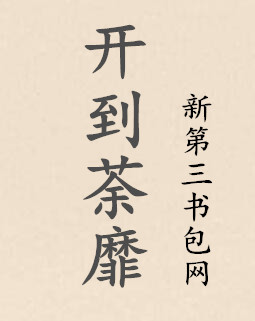 开到荼靡
新第三书包网